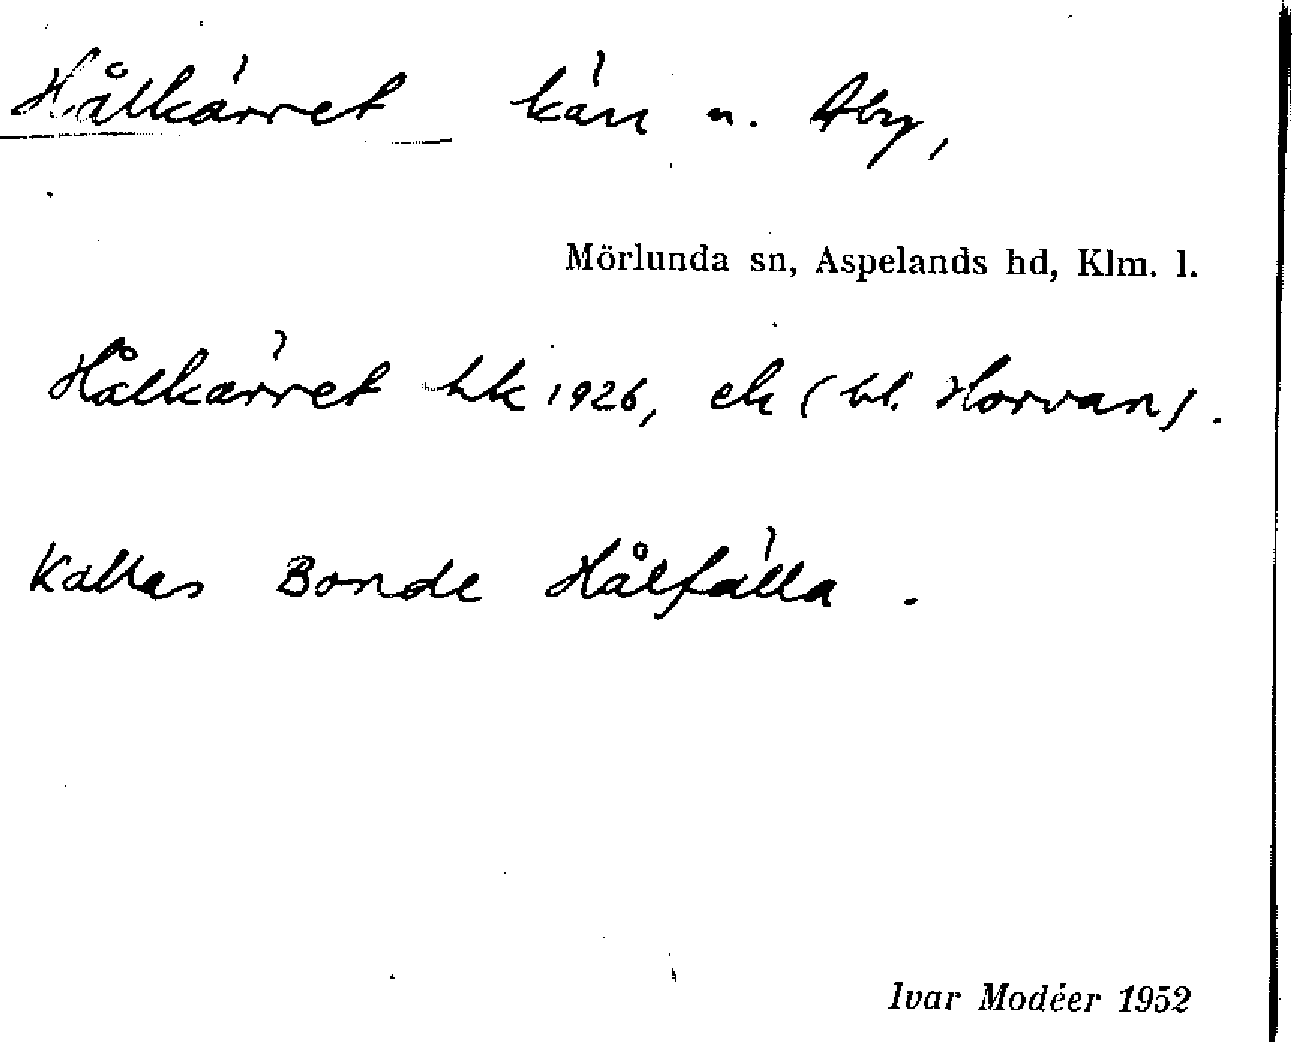 Hålkärret kärr n. Åby,
Mörlunda sn, Aspelands hd, Klm. l.
Hålkärret hk 1926, ek (bl. Horvan).
Kallas Bonde Hålfälla.
Ivar Modéer 1952